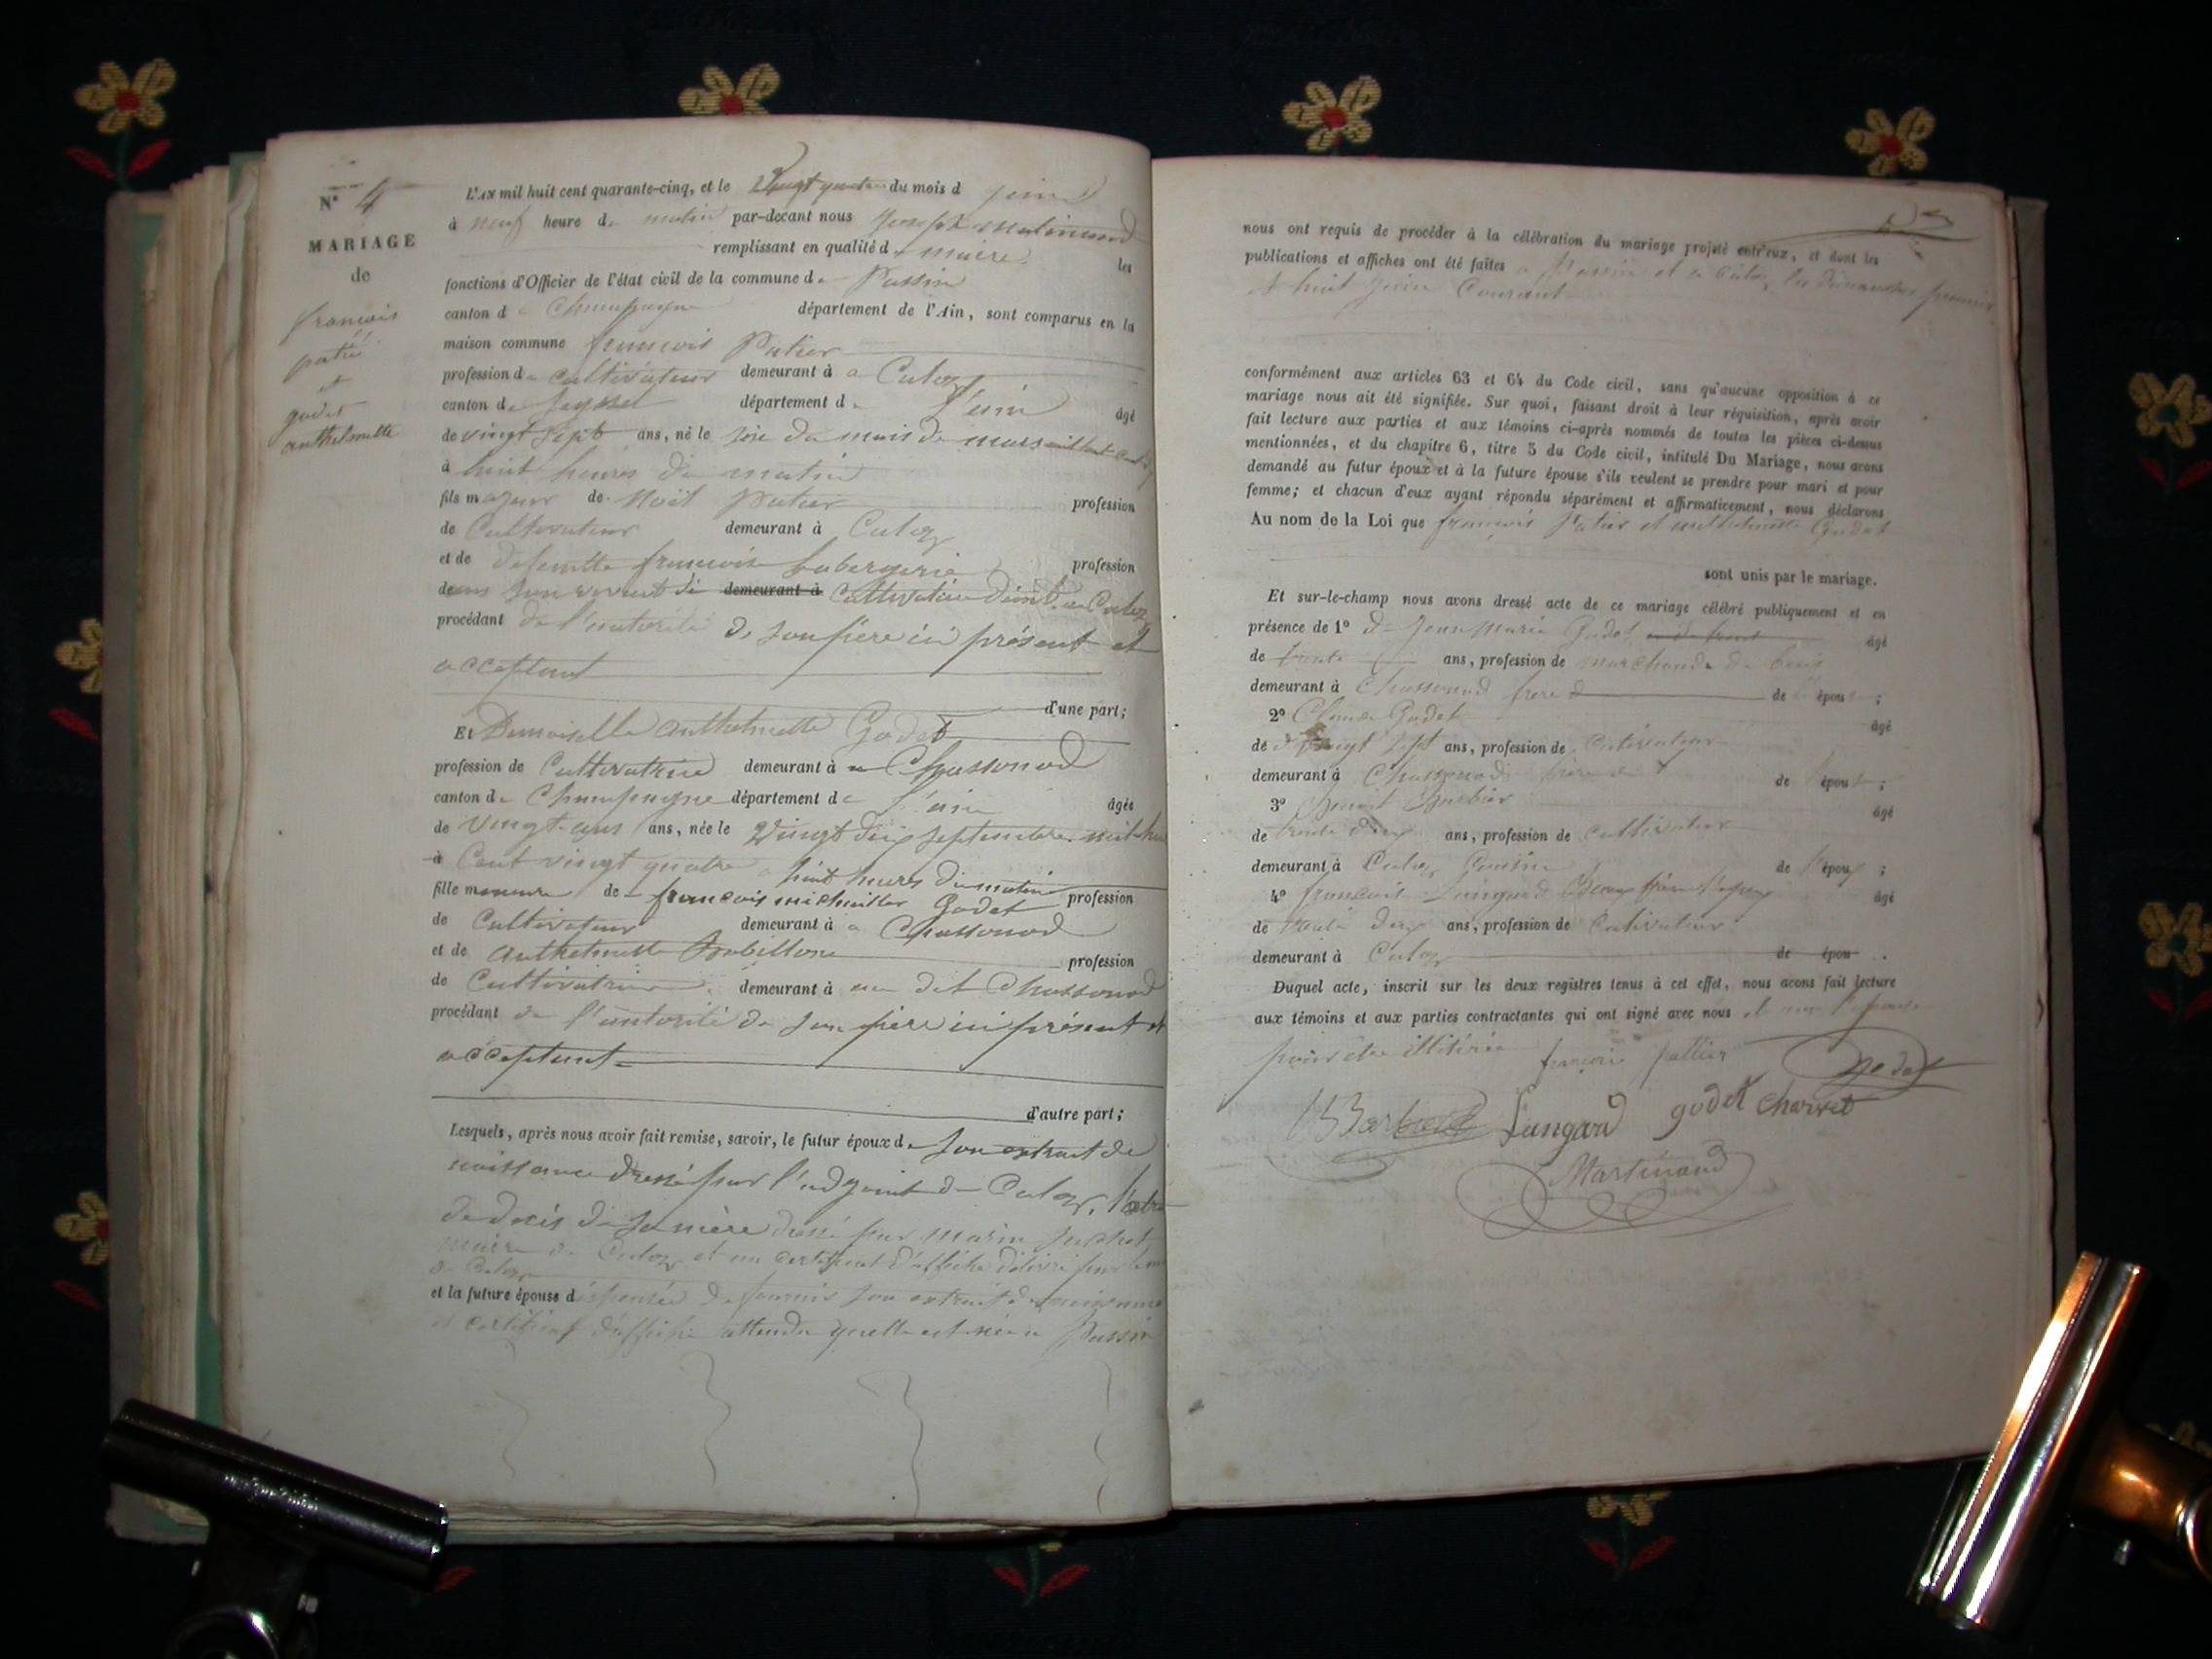 N° 4
MARIAGE
de
françois
patié
et
godet
anthelmette
L'AN mil huit cent quarante-cinq, et le Vingt quatre du mois d juin
à neuf heure d. matin par-devant nous Joseph Martinand
remplissant en qualité d. maire les
fonctions d'Officier de l'état civil de la commune d. Passin
canton d. Champagne département de l'Ain, sont comparus en la
maison commune françois Patier
profession d. cultivateur demeurant à a Culoz
canton d. Seyssel département d. l'ain âgé
de vingt sept ans, né le du mois de mars
à huit heures du matin
fils majeur de Noël Patier profession
de Cultivateur demeurant à Culoz
et de françoise profession
de son vivant de demeurant à Cultivatrice Culoz
procédant de l'autorité de son père ici présent et
acceptant
d'une part;
Et Demoiselle anthelmette Godet
profession de Cultivatrice demeurant à a Chassonod
canton d. Champagne département d. l'ain âgée
de vingt ans ans, née le Vingt septembre mil hui
à Cent vingt quatre a huit heures du matin
fille mineure de françois Godet profession
de Cultivateur demeurant à a Chassonod
et de anthelmette profession
de Cultivatrice demeurant à au dit Chassonod
procédant de l'autorité de son père ici présent et
acceptant
d'autre part;
Lesquels, après nous avoir fait remise, savoir, le futur époux d. son extrait de
naissance dressé par l'adjoint de Culoz, l'extr
de décès de sa mère dressé par marin
maire de Culoz et un certificat d'affiche délivré par
de Culoz
et la future épouse dispensée de fournir son extrait de naissance
et certificat d'affiche attendu qu'elle est née a Passin
nous ont requis de procéder à la célébration du mariage projeté entr'eux, et dont les
publications et affiches ont été faites a Passin et a Culoz les dimanches premier
et huit juin Courant
conformément aux articles 63 et 64 du Code civil, sans qu'aucune opposition à ce
mariage nous ait été signifiée. Sur quoi, faisant droit à leur réquisition, après avoir
fait lecture aux parties et aux témoins ci-après nommés de toutes les pièces ci-dessus
mentionnées, et du chapitre 6, titre 5 du Code civil, intitulé Du Mariage, nous avons
demandé au futur époux et à la future épouse s'ils veulent se prendre pour mari et pour
femme; et chacun d'eux ayant répondu séparément et affirmativement, nous déclarons
Au nom de la Loi que françois Patier et anthelmette Godet
sont unis par le mariage.
Et sur-le-champ nous avons dressé acte de ce mariage célébré publiquement et en
présence de 1° Jean Marie Godet âgé
de trente ans, profession de marchand de
demeurant à Chassonod frère de épou ;
2° Claude Godet âgé
de vingt sept ans, profession de Cultivateur
demeurant à Chassonod frère de épou ;
3° Benoit âgé
de trente ans, profession de cultivateur
demeurant à Culoz Cousin de l'époux ;
4° françois Lungard âgé
de ans, profession de Cultivateur
demeurant à Culoz de épou .
Duquel acte, inscrit sur les deux registres tenus à cet effet, nous avons fait lecture
aux témoins et aux parties contractantes qui ont signé avec nous et non l'épouse
pour être illitérée françois pattier godet
Lungard godet charvet
Martinand